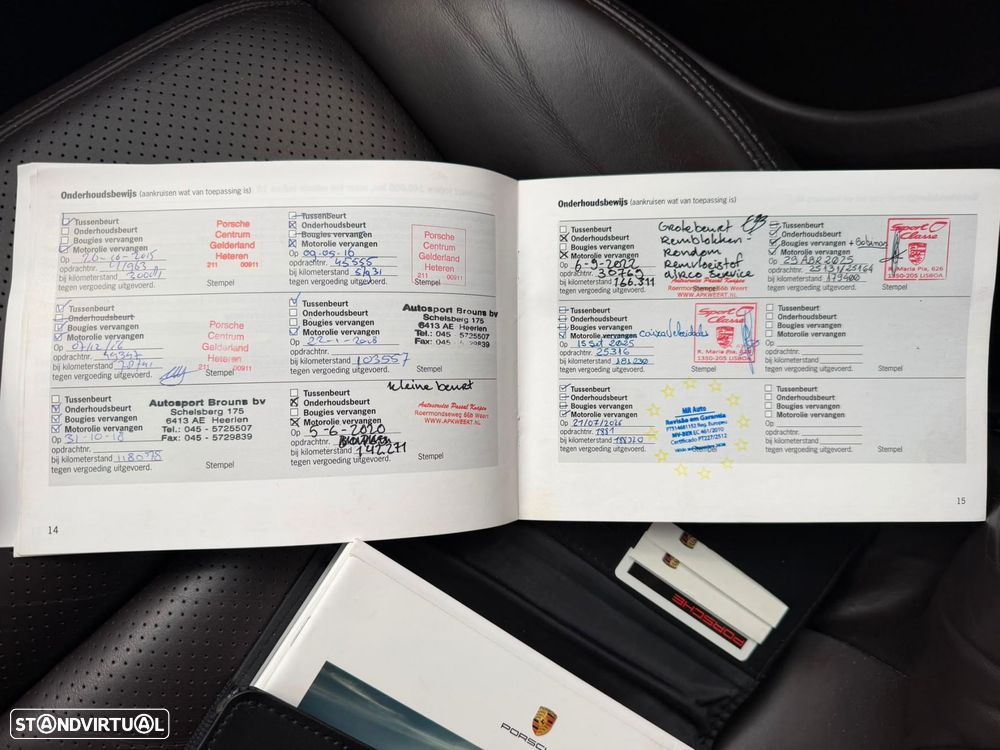 Onderhoudsbewijs (aankruisen wat van toepassing is)
Tussenbeurt
Onderhoudsbeurt
Bougies vervangen
Motorolie vervangen
Op
opdrachtnr.
bij kilometerstand
tegen vergoeding uitgevoerd.
Stempel
Porsche
Centrum
Gelderland
Heteren
211 00911
Tussenbeurt
Onderhoudsbeurt
Bougies vervangen
Motorolie vervangen
Op 09-05-16
opdrachtnr. 45555
bij kilometerstand
tegen vergoeding uitgevoerd.
Stempel
Porsche
Centrum
Gelderland
Heteren
211 00911
Tussenbeurt
Onderhoudsbeurt
Bougies vervangen
Motorolie vervangen
Op 07/12/16
opdrachtnr. 49397
bij kilometerstand
tegen vergoeding uitgevoerd.
Stempel
Porsche
Centrum
Gelderland
Heteren
211 00911
Tussenbeurt
Onderhoudsbeurt
Bougies vervangen
Motorolie vervangen
Op 22-1-2018
opdrachtnr.
bij kilometerstand 103557
tegen vergoeding uitgevoerd.
Stempel
Autosport Brouns bv
Schelsberg 175
6413 AE Heerlen
Tel.: 045 - 5725507
Fax: 045 - 5729839
Tussenbeurt
Onderhoudsbeurt
Bougies vervangen
Motorolie vervangen
Op 31-10-18
opdrachtnr.
bij kilometerstand 118078
tegen vergoeding uitgevoerd.
Stempel
Autosport Brouns bv
Schelsberg 175
6413 AE Heerlen
Tel.: 045 - 5725507
Fax: 045 - 5729839
Kleine beurt
Tussenbeurt
Onderhoudsbeurt
Bougies vervangen
Motorolie vervangen
Op 5-6-2020
opdrachtnr.
bij kilometerstand 142.271
tegen vergoeding uitgevoerd.
Stempel
Autoservice Pascal Knapen
Roermondseweg 66b Weert
WWW.APKWEERT.NL
14
Onderhoudsbewijs (aankruisen wat van toepassing is)
Tussenbeurt
Onderhoudsbeurt
Bougies vervangen
Motorolie vervangen
Op 6-9-2022
opdrachtnr. 30769
bij kilometerstand 166.311
tegen vergoeding uitgevoerd.
Stempel
Grote beurt
Remblokken
Rondom
Remvloeistof
airco Service
Autoservice Pascal Knapen
Roermondseweg 66b Weert
WWW.APKWEERT.NL
Tussenbeurt
Onderhoudsbeurt
Bougies vervangen + Bobinas
Motorolie vervangen
Op 29 ABR 2025
opdrachtnr. 25131/25164
bij kilometerstand 179400
tegen vergoeding uitgevoerd.
Stempel
Sport
Classe
R. Maria Pia, 626
1350-205 LISBOA
Tussenbeurt
Onderhoudsbeurt
Bougies vervangen
Motorolie vervangen
caixa velocidades
Op 15 Set 2025
opdrachtnr. 25316
bij kilometerstand 181230
tegen vergoeding uitgevoerd.
Stempel
Sport
Classe
R. Maria Pia, 626
1350-205 LISBOA
Tussenbeurt
Onderhoudsbeurt
Bougies vervangen
Motorolie vervangen
Op
opdrachtnr.
bij kilometerstand
tegen vergoeding uitgevoerd.
Stempel
Tussenbeurt
Onderhoudsbeurt
Bougies vervangen
Motorolie vervangen
Op
opdrachtnr. 1881
bij kilometerstand
tegen vergoeding uitgevoerd.
Stempel
MR Auto
Revisão em Garantia
MV-BER EC 461/2010
Certificado PT227/2512
Tussenbeurt
Onderhoudsbeurt
Bougies vervangen
Motorolie vervangen
Op
opdrachtnr.
bij kilometerstand
tegen vergoeding uitgevoerd.
Stempel
15
PORSCHE
PORSCHE
STANDVIRTUAL